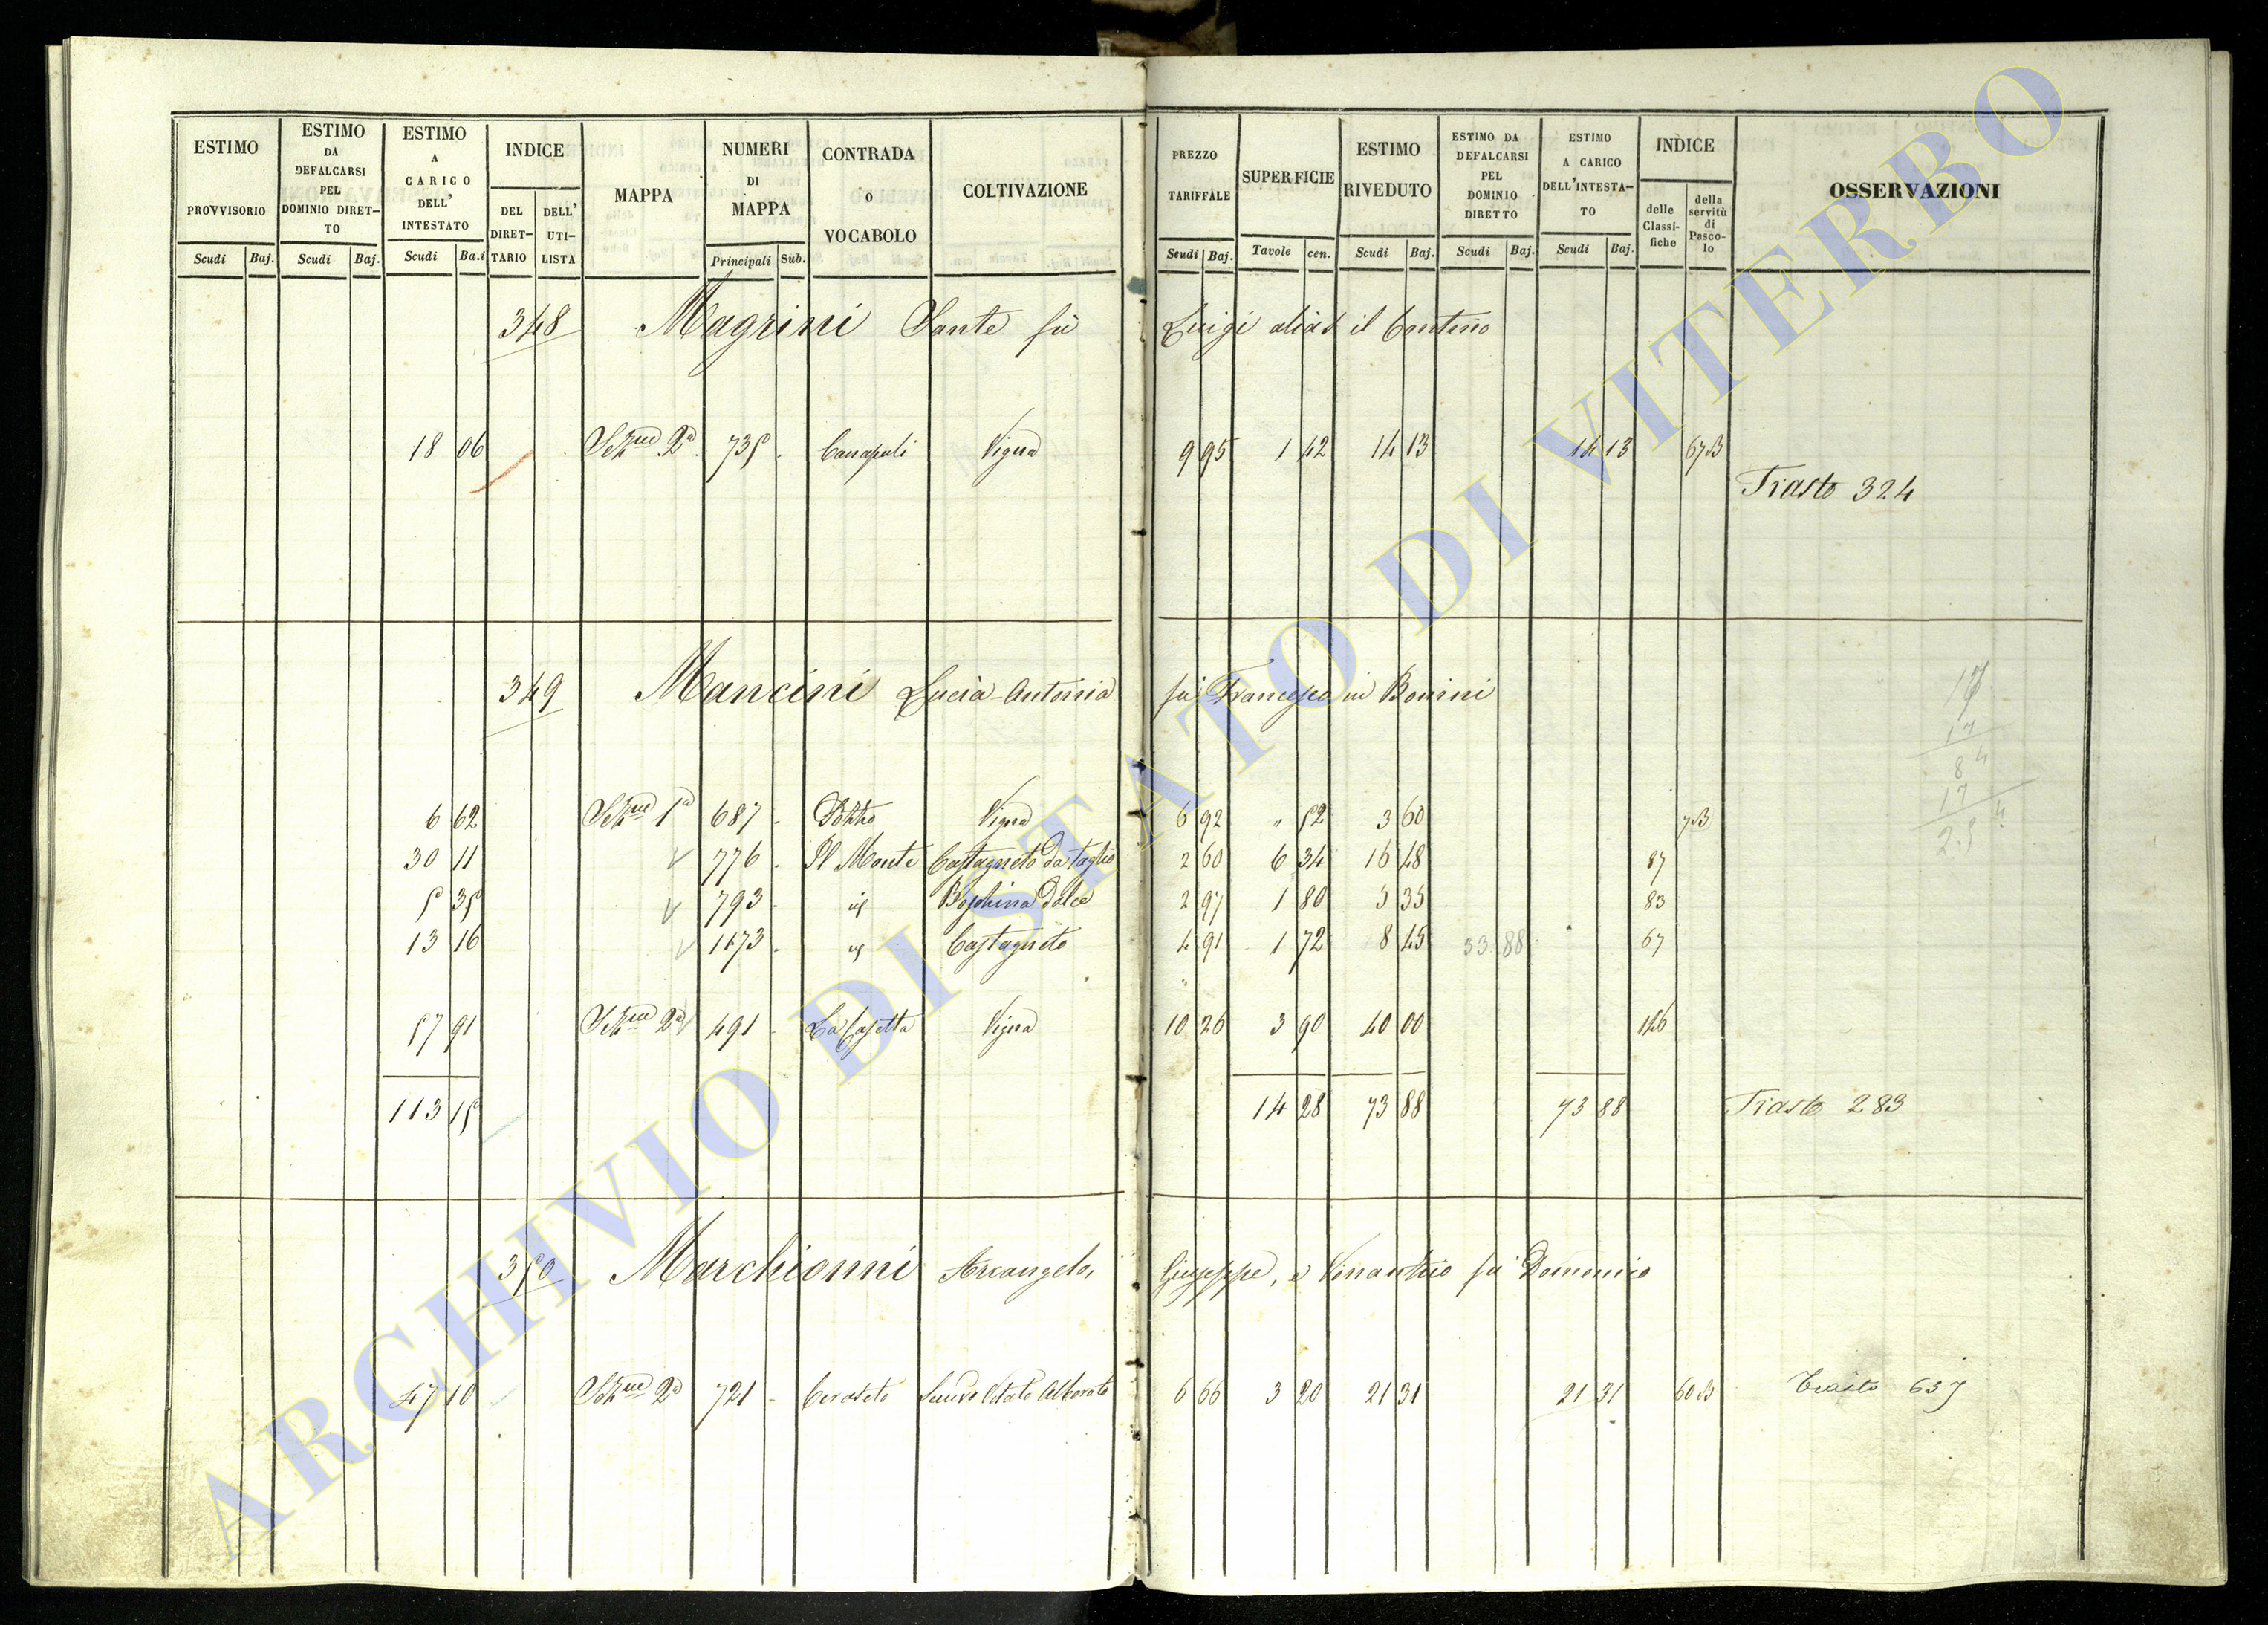 ESTIMO PROVVISORIO
Scudi Baj.
ESTIMO DA DEFALCARSI PEL DOMINIO DIRET-TO
Scudi Baj.
ESTIMO A CARICO DELL' INTESTATO
Scudi Ba.i
INDICE
DEL DIRET-TARIO
DELL' UTI-LISTA
MAPPA
NUMERI DI MAPPA
Principali Sub.
CONTRADA o VOCABOLO
COLTIVAZIONE
PREZZO TARIFFALE
Scudi Baj.
SUPERFICIE
Tavole cen.
ESTIMO RIVEDUTO
Scudi Baj.
ESTIMO DA DEFALCARSI PEL DOMINIO DIRETTO
Scudi Baj.
ESTIMO A CARICO DELL'INTESTA-TO
Scudi Baj.
INDICE
delle Classi-fiche
della servitù di Pasco-lo
OSSERVAZIONI
348 Magrini Sante fù Luigi alias il Contino
18 06 Sezne 2a 735 Canapuli Vigna 9 95 1 42 14 13 14 13 67B
Trasto 324
349 Mancini Lucia Antonia fù Francesco in Bonini
6 62 Sezne 1a 687 Pozzo Vigna 6 92 " 52 3 60 7B
30 11 776 Il Monte Castagneto da taglio 2 60 6 34 16 48 87
5 35 793 id Boschina dolce 2 97 1 80 5 35 83
13 16 1173 id Castagneto 4 91 1 72 8 45 33 88 67
57 91 Sezne 2a 491 La Casetta Vigna 10 26 3 90 40 00 146
113 15 14 28 73 88 73 88 Trasto 283
17
84
17
350 Marchionni Arcangelo, Giuseppe, e Venanzio fù Domenico
47 10 Sezne 2a 721 Ceraseto Semvo Vitato Alborato 6 66 3 20 21 31 21 31 60B Trasto 637
ARCHIVIO DI STATO DI VITERBO